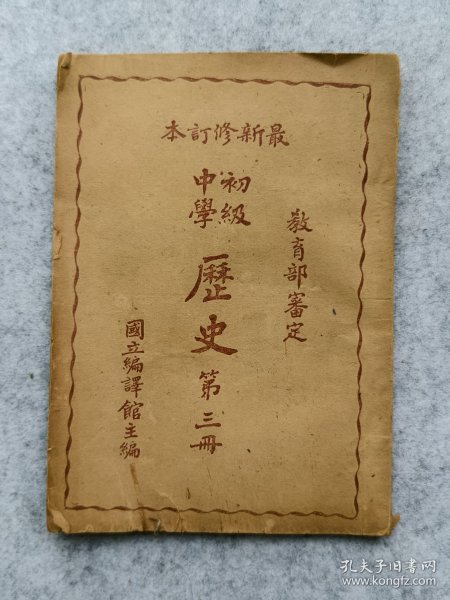 最新修訂本
教育部審定
初級
中學
歷史第三冊
國立編譯館主編
孔夫子旧书网
www.kongfz.com